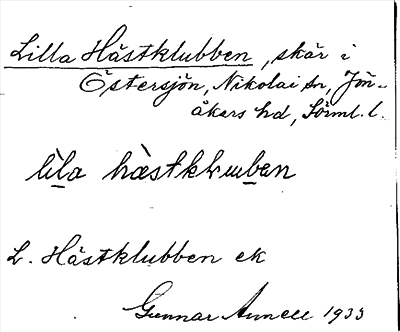 Lilla Hästklubben, skär i
Östersjön, Nikolai sn, Jön-
åkers hd, Sörml. l.
lìla hàstklubben
L. Hästklubben ek
Gunnar Annell 1933